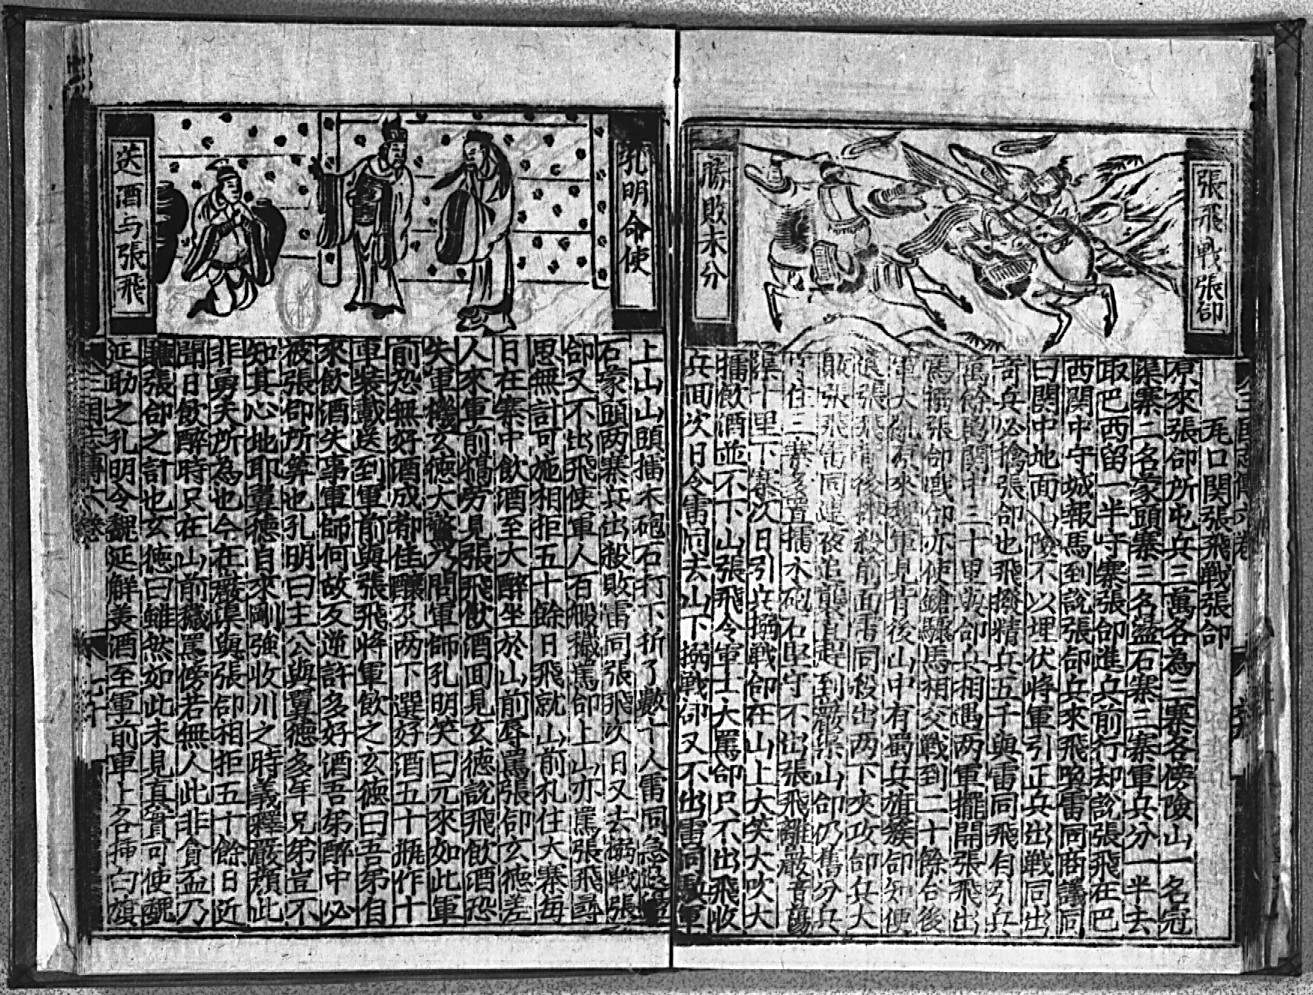 張飛戰張郃
勝敗未分
瓦口関張飛戦張郃
原來張郃所屯兵三萬各為三寨各傍險山一名宕
渠寨二名蒙頭寨三名盪石寨三寨軍兵分一半去
取巴西留一半守寨張郃進兵前行却說張飛在巴
西関中守城報馬到說張郃兵來飛喚雷同商議同
曰関中地面山險不以埋伏將軍引正兵出戦同出
奇兵必擒張郃也飛撥精兵五千與雷同飛自引兵
萬餘離関中三十里與郃兵相遇两軍擺開張飛出
馬搦張郃戦郃亦使鎗驟馬相交戦到二十餘合後
軍大亂原來魏軍見背後山中有蜀兵旗幟郃知便
退張飛背後掩殺前面雷同殺出两下夾攻郃兵大
敗張飛雷同連夜追襲直趕到巖渠山郃仍舊分兵
守住三寨多置擂木砲石坚守不出張飛離巖音蕩
渠十里下寨次日引兵搦戦郃在山上大笑大吹大
擂飲酒並不下山張飛令軍士大罵郃只不出飛收
兵囬次日令雷同去山下搦戦郃又不出雷同駆軍
孔明命使
送酒与張飛
上山山頭擂木砲石打下折了數十人雷同急退
石蒙頭两寨兵出殺敗雷同張飛次日又去搦戦張
郃又不出飛使軍人百般穢罵郃上山亦罵張飛尋
思無計可施相拒五十餘日飛就山前札住大寨每
日在寨中飲酒至大醉坐於山前辱罵張郃玄德差
人來軍前犒劳見張飛飲酒囬見玄德說飛飲酒恐
失軍機玄德大驚乃問軍師孔明笑曰元來如此軍
前恐無好酒成都佳釀及两下選好酒五十瓶作十
車裝載送到軍前與張飛將軍飲之玄德曰吾弟自
來飲酒失事軍師何故反逆許多好酒吾弟醉中必
被張郃所算也孔明曰主公與翼德多年兄弟豈不
知其心地耶翼德自來剛強收川之時義釋嚴顔此
非勇夫所為也今在巖渠與張郃相拒五十餘日近
聞日飲醉時只在山前穢罵傍若無人此非貪盃乃
賺張郃之計也玄德曰雖然如此未見真實可使魏
延助之孔明令魏延觧美酒至軍前車上各挿白旗